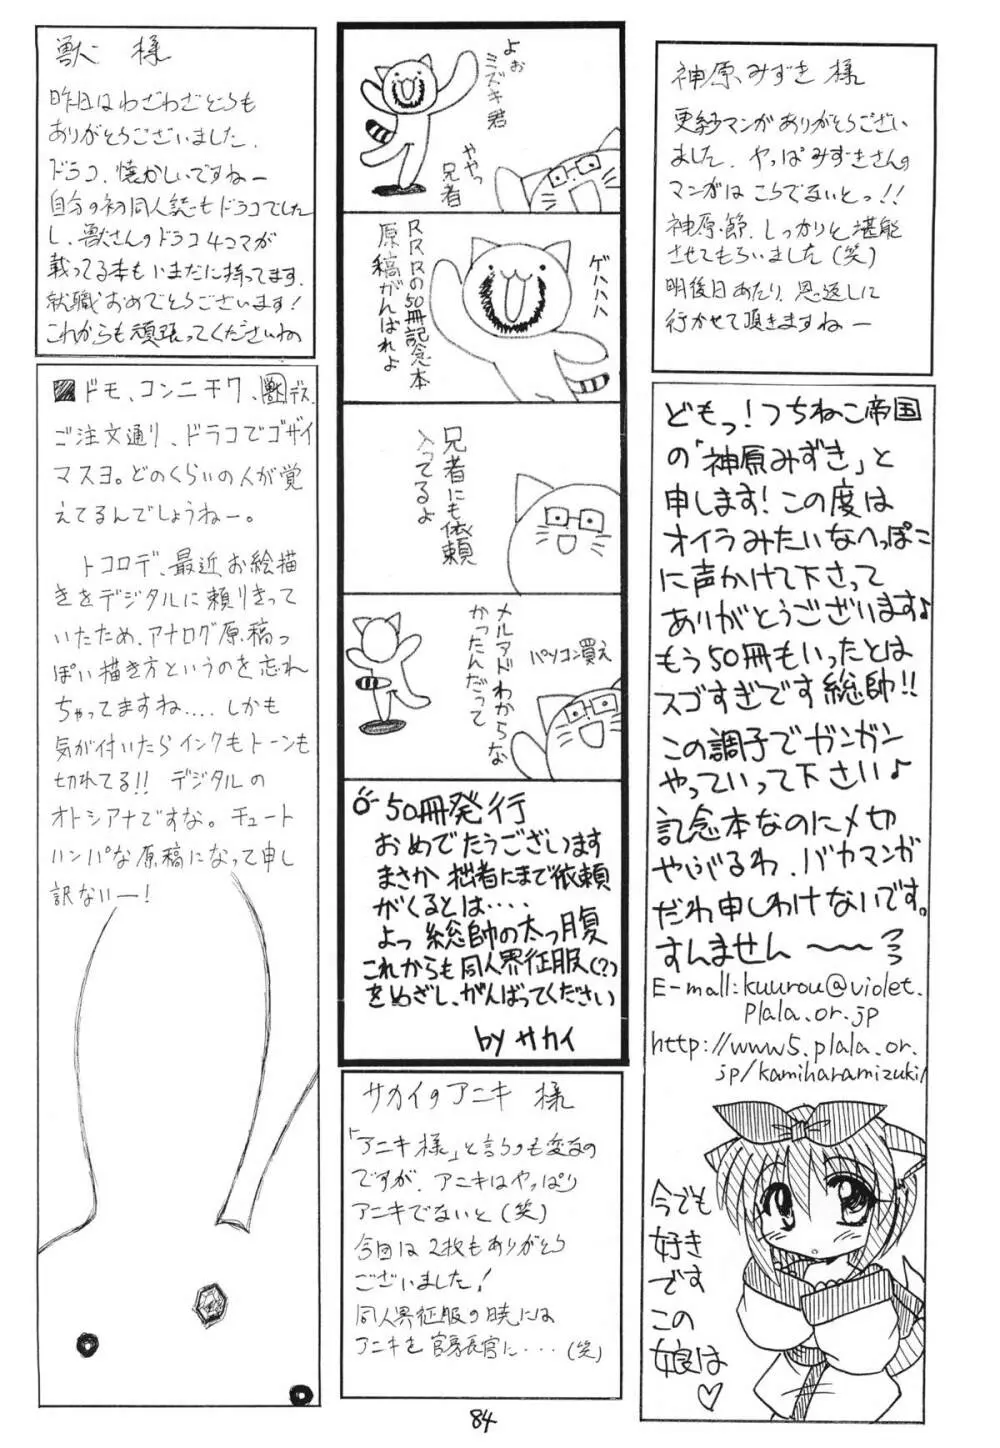 獣 様
昨日はわざわざどうも
ありがとうございました.
ドラコ、懐かしいですねー
自分の初同人誌もドラコでした
し、獣さんのドラコ4コマが
載ってる本もいまだに持ってます.
就職おめでとうございます!
これからも頑張ってくださいね
ドモ、コンニチワ、獣デス.
ご注文通り、ドラコでゴザイ
マスヨ。どのくらいの人が覚
えてるんでしょうねー。
トコロデ、最近、お絵描
きをデジタルに頼りきって
いたため、アナログ原稿っ
ぽい描き方というのを忘れ
ちゃってますね.... しかも
気が付いたらインクもトーンも
切れてる!! デジタルの
オトシアナですな。チュート
ハンパな原稿になって申し
訳ないー!
よぉ
ミズキ君
ややっ
兄者
ゲハハハ
RRRの50冊記念本
原稿がんばれよ
兄者にも依頼
入ってるよ
メルアドわからな
かったんだって
パソコン買え
50冊発行
おめでたうございます
まさか 拙者にまで依頼
がくるとは....
よっ 総帥の太っ腹
これからも同人界征服(?)
をめざし、がんばってください
by サカイ
サカイのアニキ 様
「アニキ様」と言うのも変なの
ですが、アニキはやっぱり
アニキでないと(笑)
今回は2枚もありがとう
ございました!
同人界征服の暁には
アニキを官房長官に...(笑)
神原みずき 様
更紗マンガありがとうござい
ました. やっぱみずきさんの
マンガはこうでないとっ!!
神原節、しっかりと堪能
させてもらいました(笑)
明後日あたり、恩返しに
行かせて頂きますねー
どもっ!つちねこ帝国
の「神原みずき」と
申します!この度は
オイラみたいなへっぽこ
に声かけて下さって
ありがとうございます♪
もう50冊もいったとは
スゴすぎです総帥!!
この調子でガンガン
やっていって下さい♪
記念本なのに〆切
やぶるわ、バカマンガ
だわ申しわけないです。
すんません〜〜
E-mall:kuurou@violet.
plala.or.jp
http://www5.plala.or.
jp/kamiharamizuki/
今でも
好き
です
この
娘は
♡
84